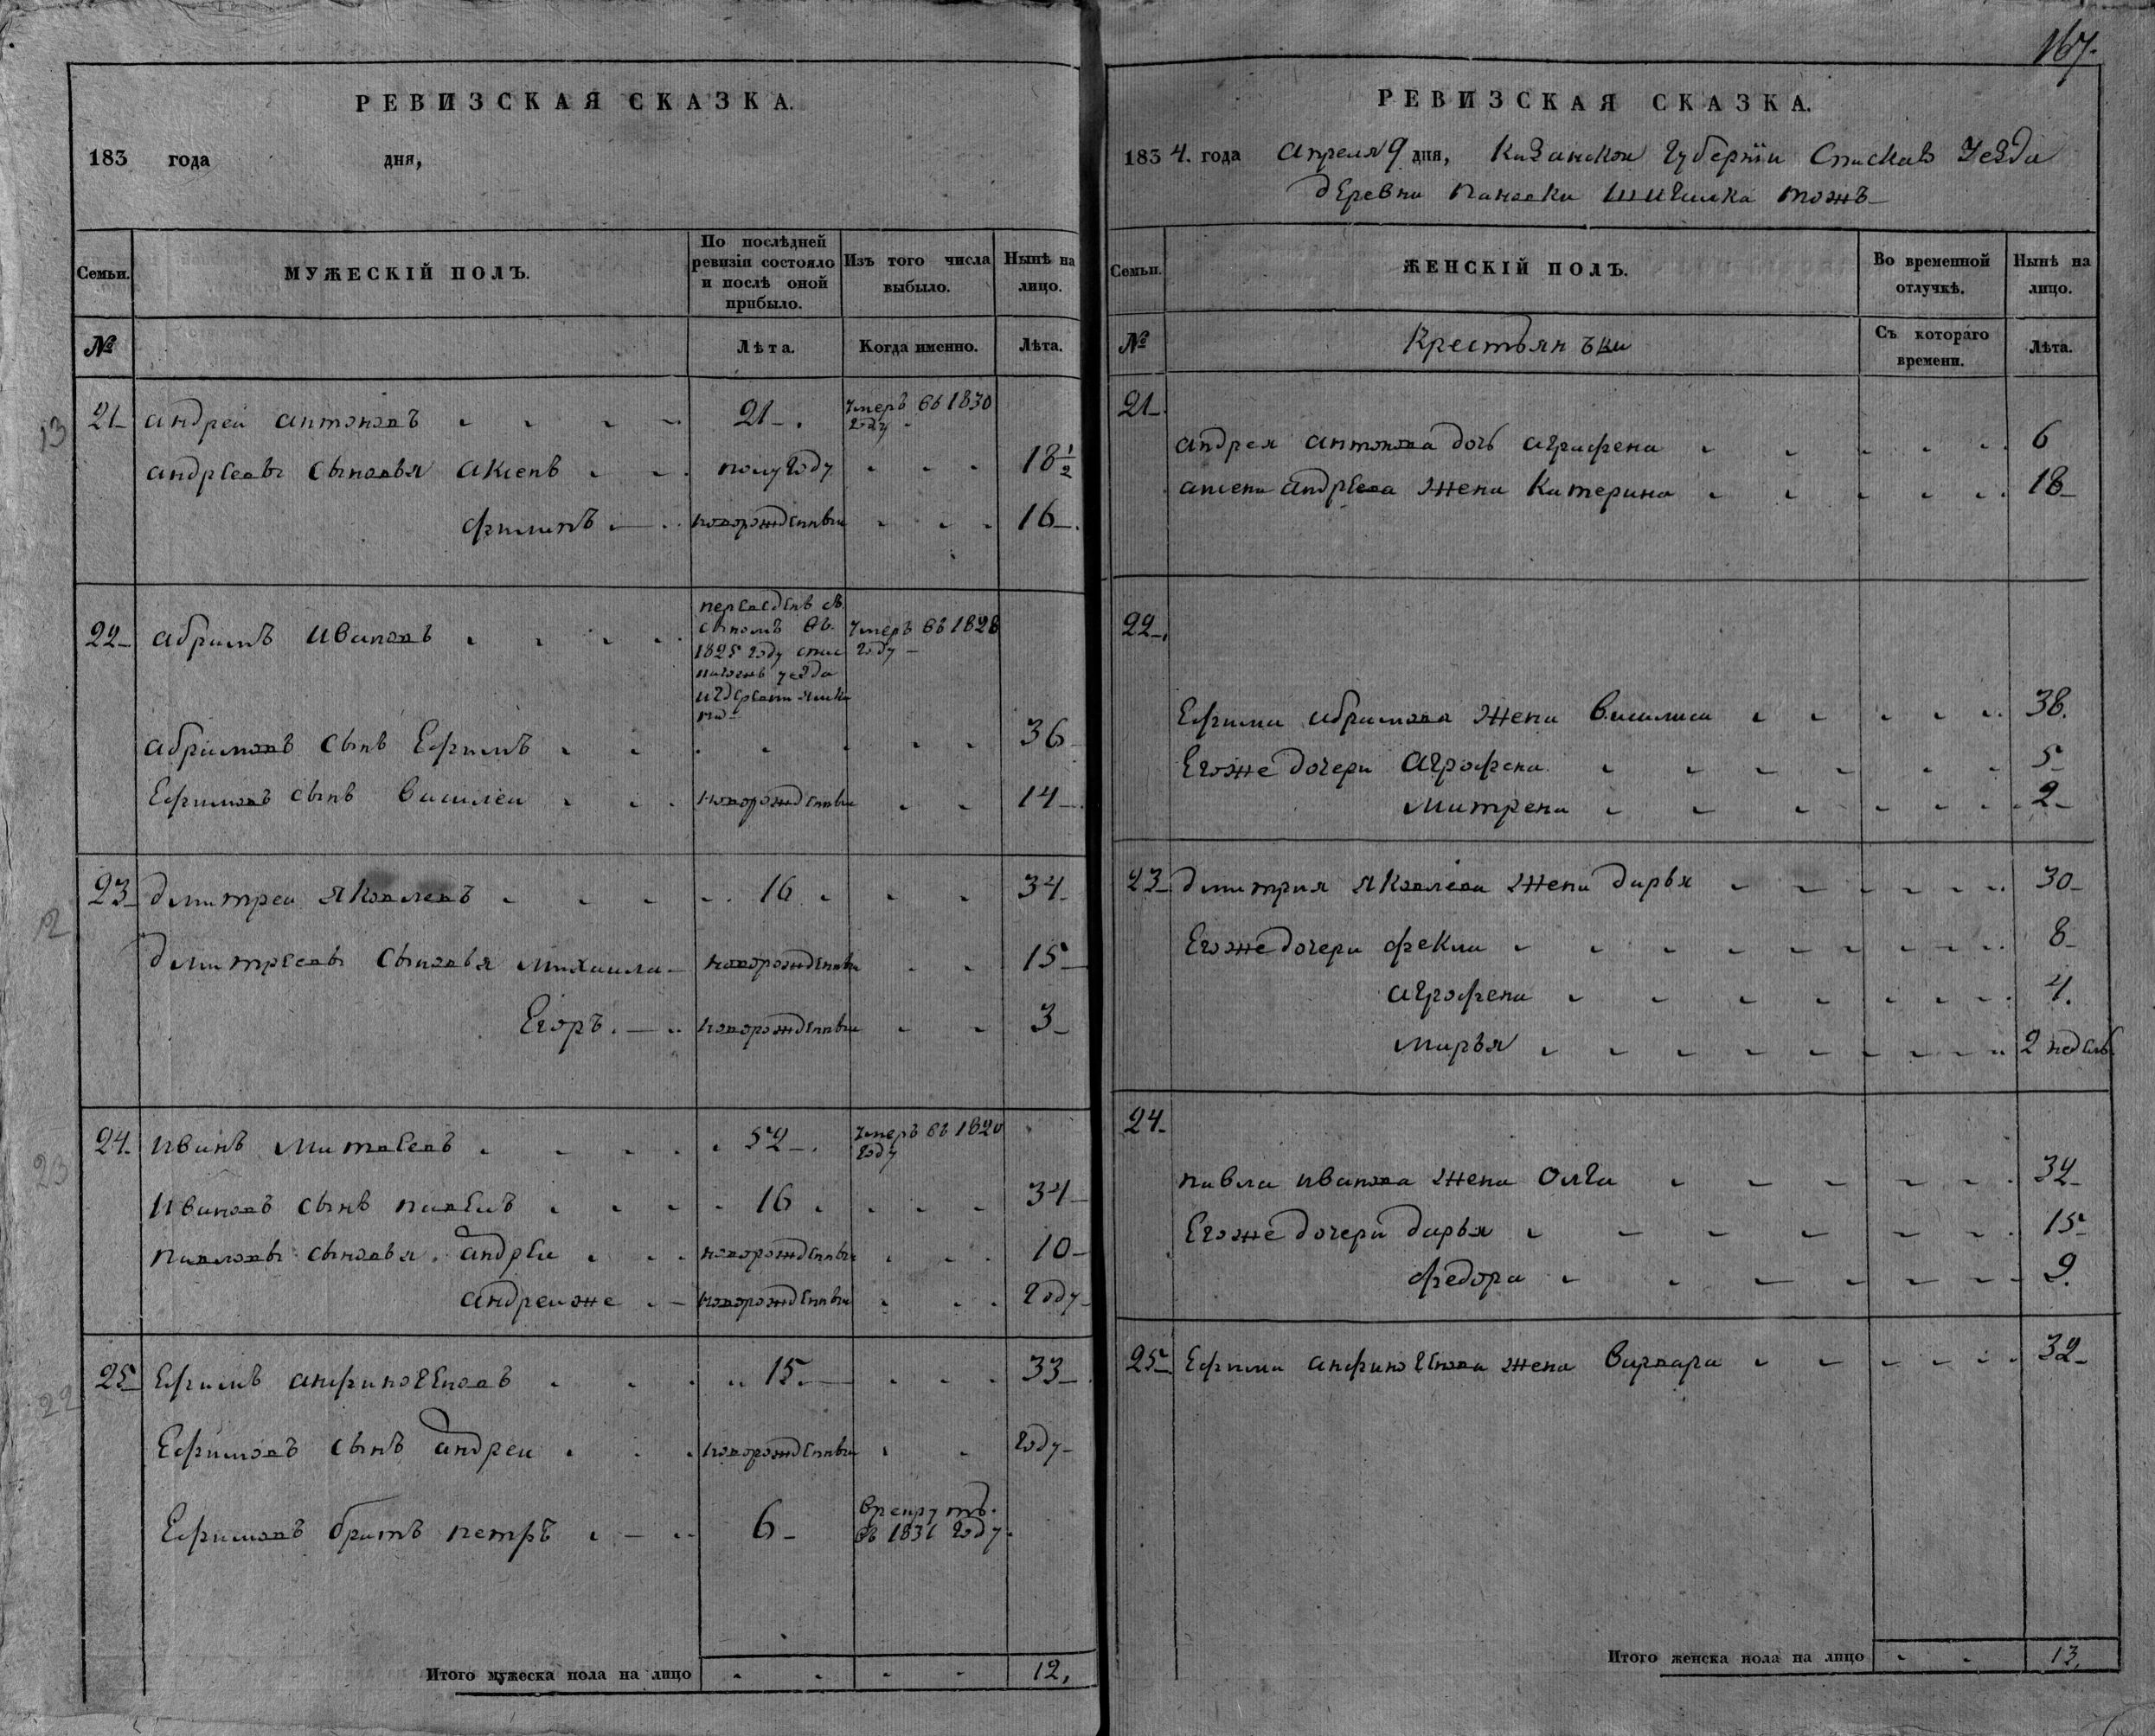 167.
РЕВИЗСКАЯ СКАЗКА.
183 года дня,
Семьи.
МУЖЕСКІЙ ПОЛЪ.
По послѣдней ревизіи состояло и послѣ оной прибыло.
Изъ того числа выбыло.
Нынѣ на лицо.
№
Лѣта.
Когда именно.
Лѣта.
13
21 андреи антоновъ 21 умеръ въ 1830 году
андреевы сыновья акиспъ полугоду 18 1/2
филипъ новорожденныи 16
22 абрамъ ивановъ переведенъ съ сыномъ въ 1825 году уезда деревни умеръ въ 1828 году
абрамовъ сынъ Ефимъ 36
Ефимовъ сынъ василеи новорожденныи 14
12
23 дмитреи яковлевъ 16 34
дмитреевы сыновья михаила новорожденныи 15
Егоръ новорожденныи 3
23
24 иванъ матвеевъ 52 умеръ въ 1820 году
ивановъ сынъ павелъ 16 34
павловы сыновья андреи новорожденныи 10
андреиже новорожденныи году
22
25 Ефимъ анфиногеновъ 15 33
Ефимовъ сынъ андреи новорожденныи году
Ефимовъ братъ петръ 6 врекруты въ 1831 году
Итого мужеска пола на лицо 12,
РЕВИЗСКАЯ СКАЗКА.
1834. года апреля 9 дня, казанскои губернии Спаскавъ уезда
деревни тожъ
Семьи.
ЖЕНСКІЙ ПОЛЪ.
Во временной отлучкѣ.
Нынѣ на лицо.
№
Крестьянъки
Съ котораго времени.
Лѣта.
21
андрея антонова дочь аграфена 6
андреева жена катерина 18
22
Ефима абрамова жена василиса 38.
Егоже дочери аграфена 5
матрена 2
23 дмитрия яковлева жена дарья 30
Егоже дочери фекла 8
аграфена 4.
марья 2 недель
24
павла иванова жена олга 32
Егоже дочери дарья 15
федора 9.
25 Ефима анфиногенова жена варвара 32
Итого женска пола на лицо 13,